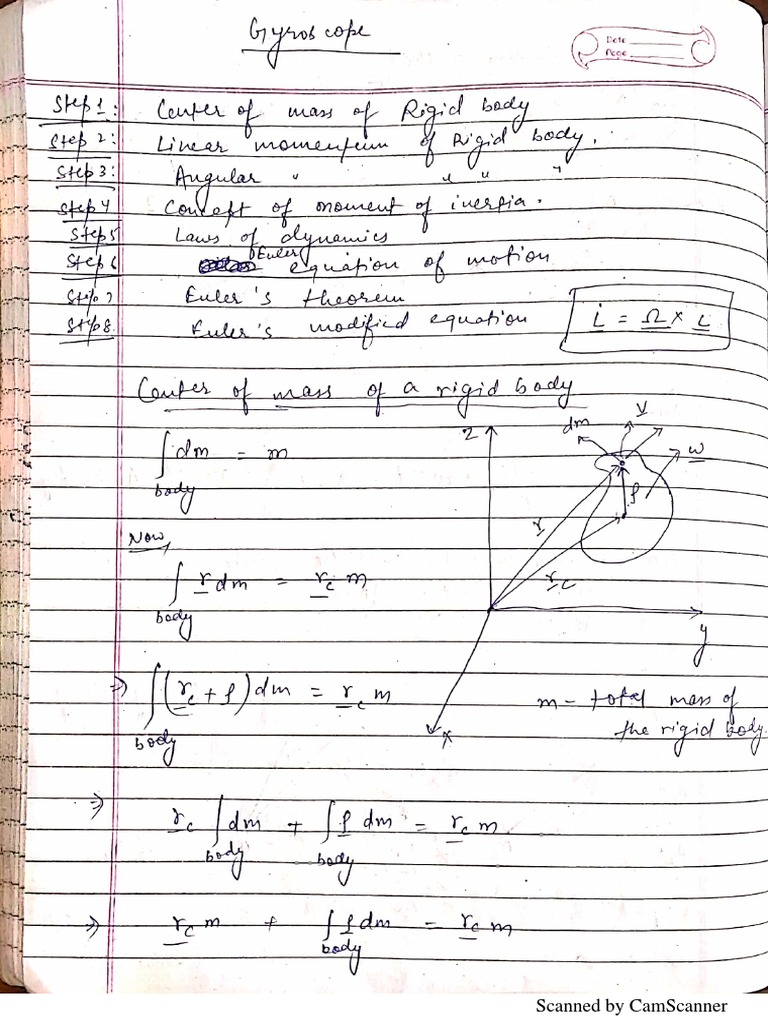 Gyroscope
Date
Page
Step 1: Center of mass of Rigid body
Step 2: Linear momentum of Rigid body.
Step 3: Angular " " " "
Step 4 Concept of moment of inertia.
Step 5 Laws of dynamics
Step 6 Euler equation of motion
Step 7 Euler's theorem
Step 8 Euler's modified equation L̇ = Ω × L
Center of mass of a rigid body
∫ dm = m
body
z
dm
v
w
ρ
r
r_c
y
x
Now,
∫ r dm = r_c m
body
⇒ ∫ (r_c + ρ) dm = r_c m
body
m - total mass of
the rigid body.
⇒ r_c ∫ dm + ∫ ρ dm = r_c m
body body
⇒ r_c m + ∫ ρ dm = r_c m
body
Scanned by CamScanner